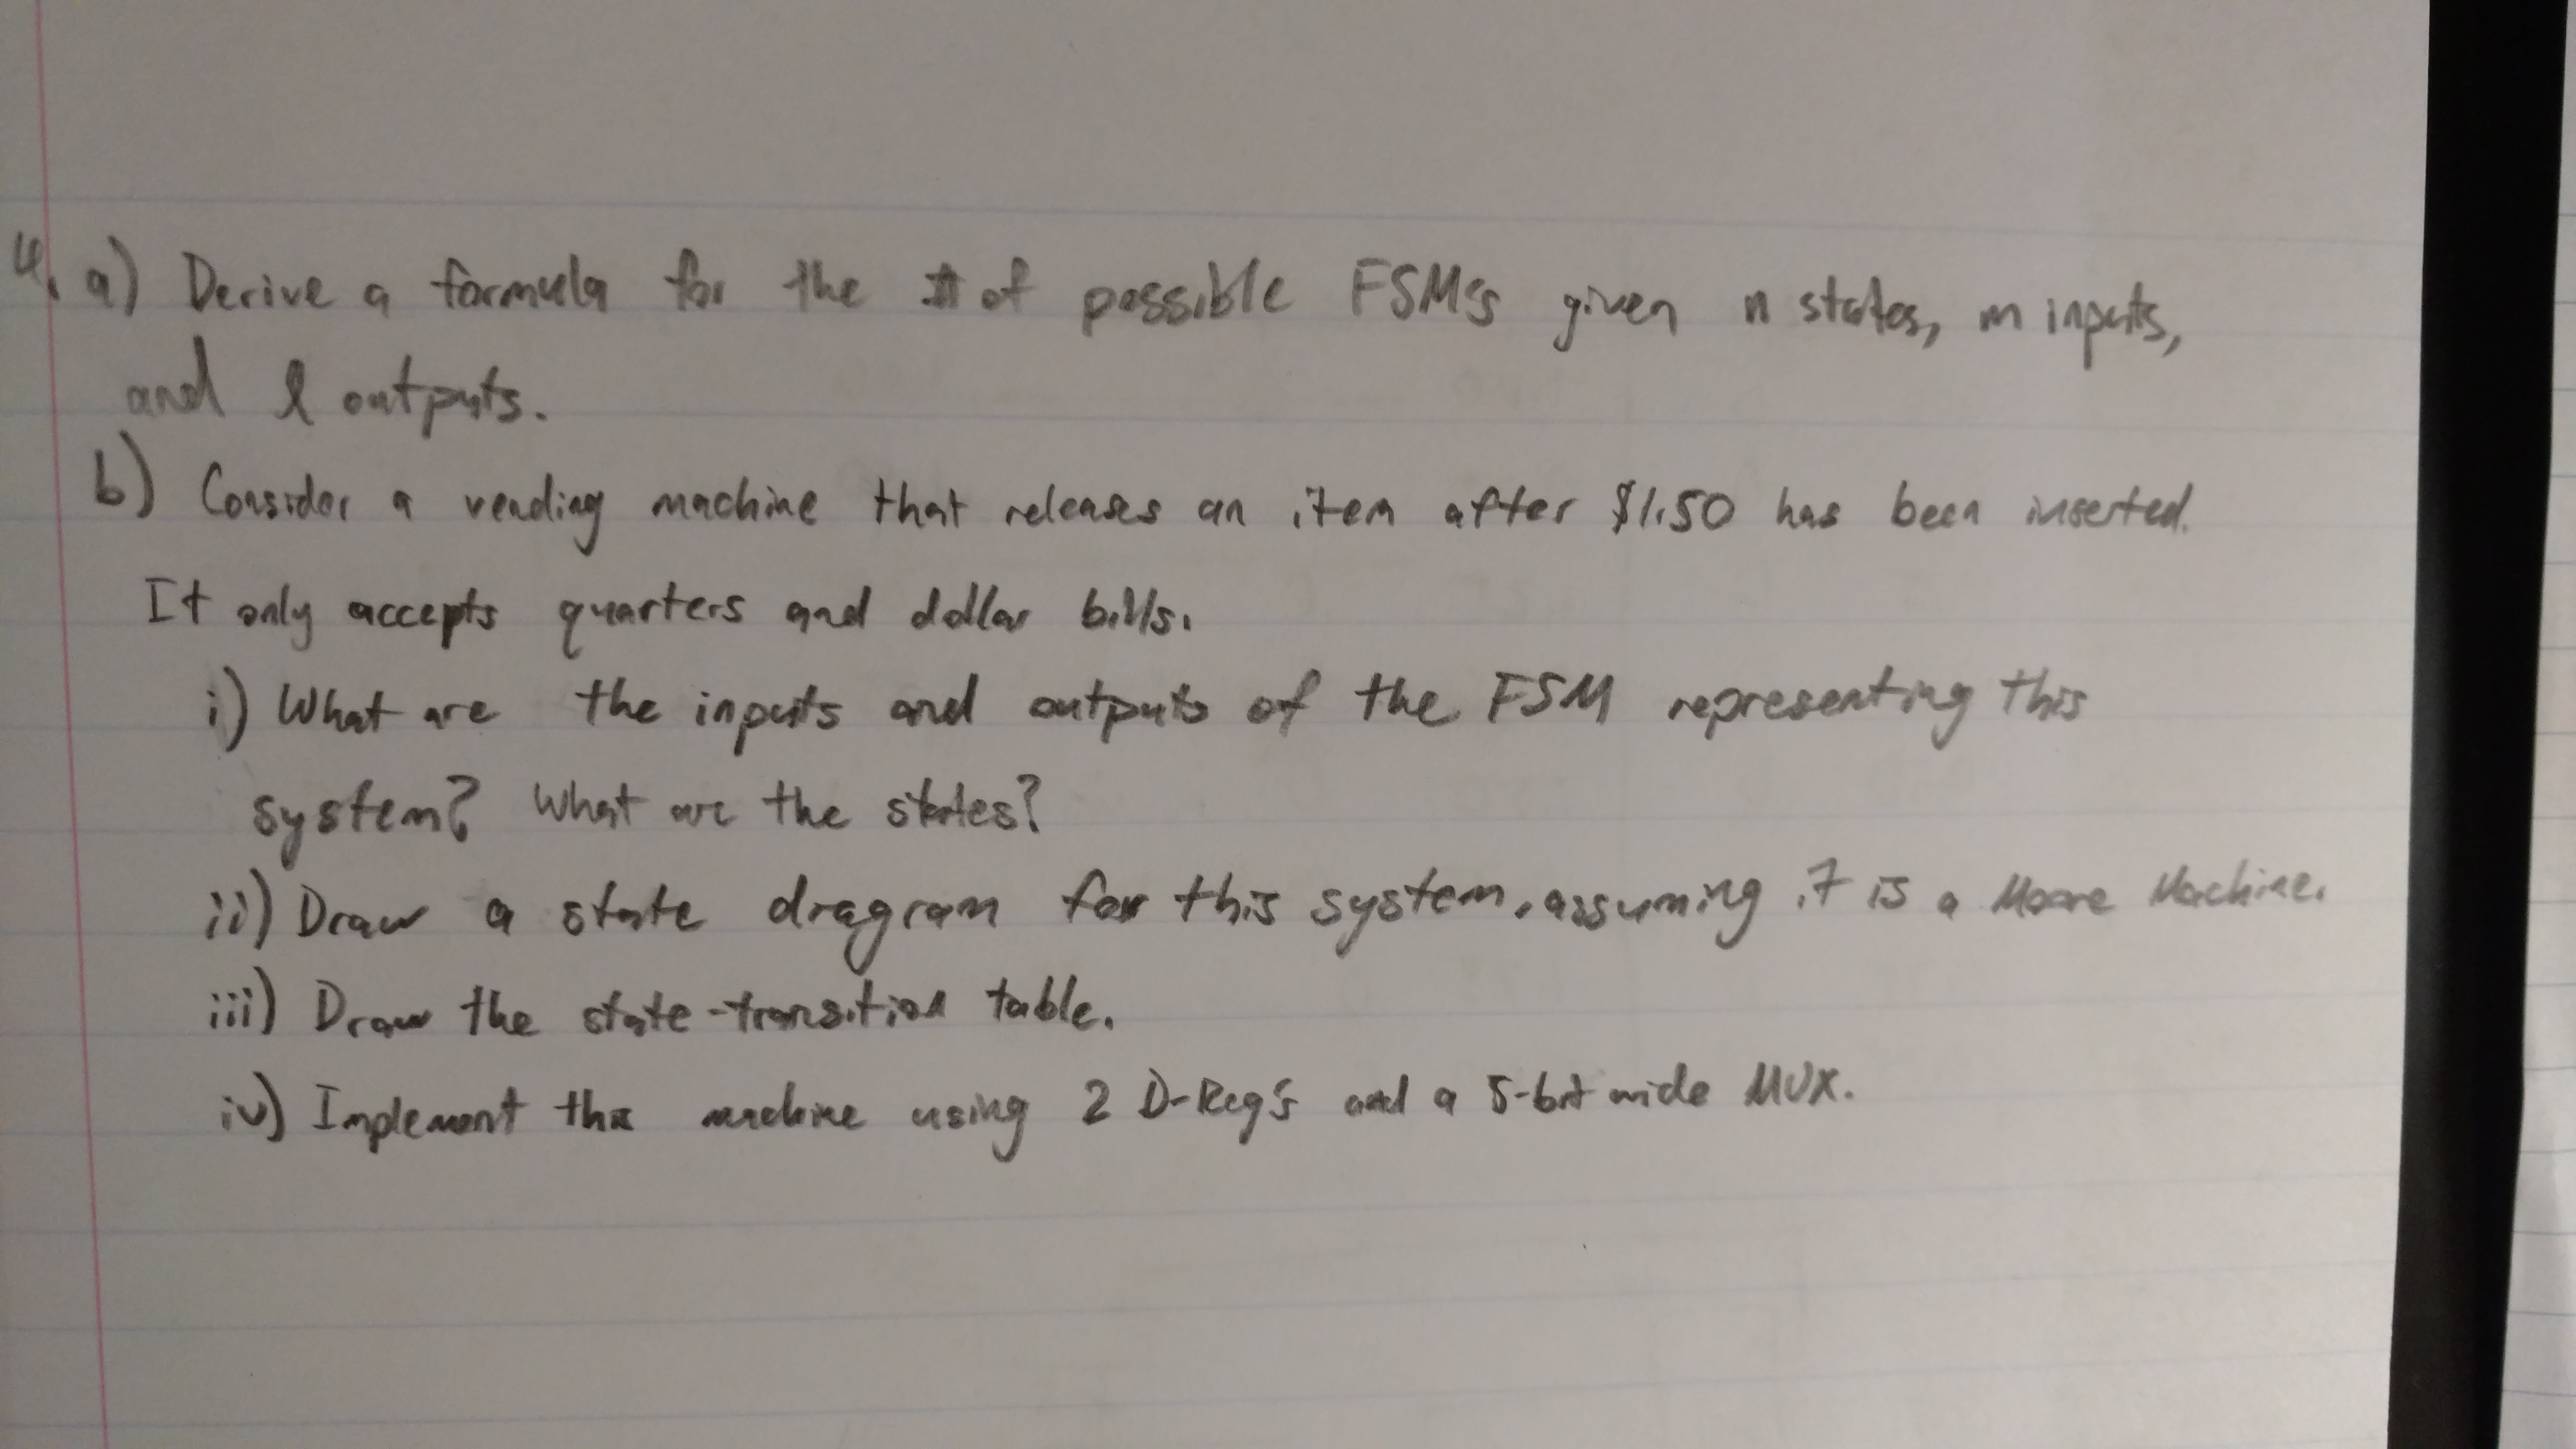 4. a) Derive a formula for the # of possible FSM's given n states, m inputs,
and l outputs.
b) Consider a vending machine that releases an item after $1.50 has been inserted.
It only accepts quarters and dollar bills.
i) What are the inputs and outputs of the FSM representing this
system? What are the states?
ii) Draw a state diagram for this system, assuming it is a Moore Machine.
iii) Draw the state-transition table.
iv) Implement the machine using 2 D-Reg's and a 5-bit wide MUX.